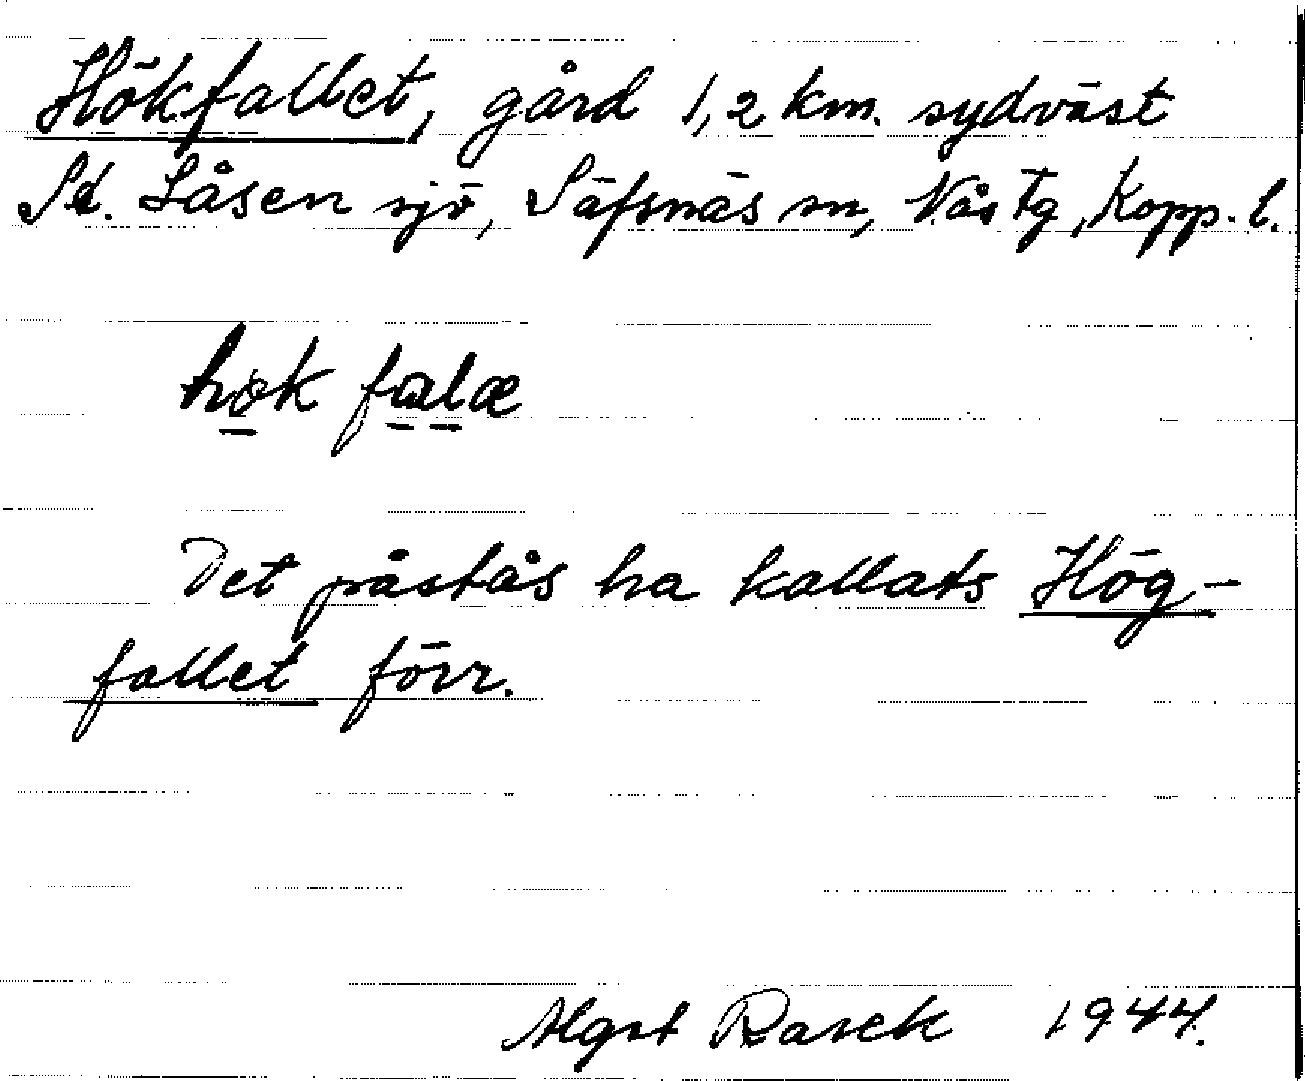 Hökfallet, gård 1,2 km. sydväst
St. Låsen sjö, Säfsnäs sn, Nås tg, Kopp. l.
høk falæ
Det påstås ha kallats Hög-
fallet förr.
Algot Rasck 1944.